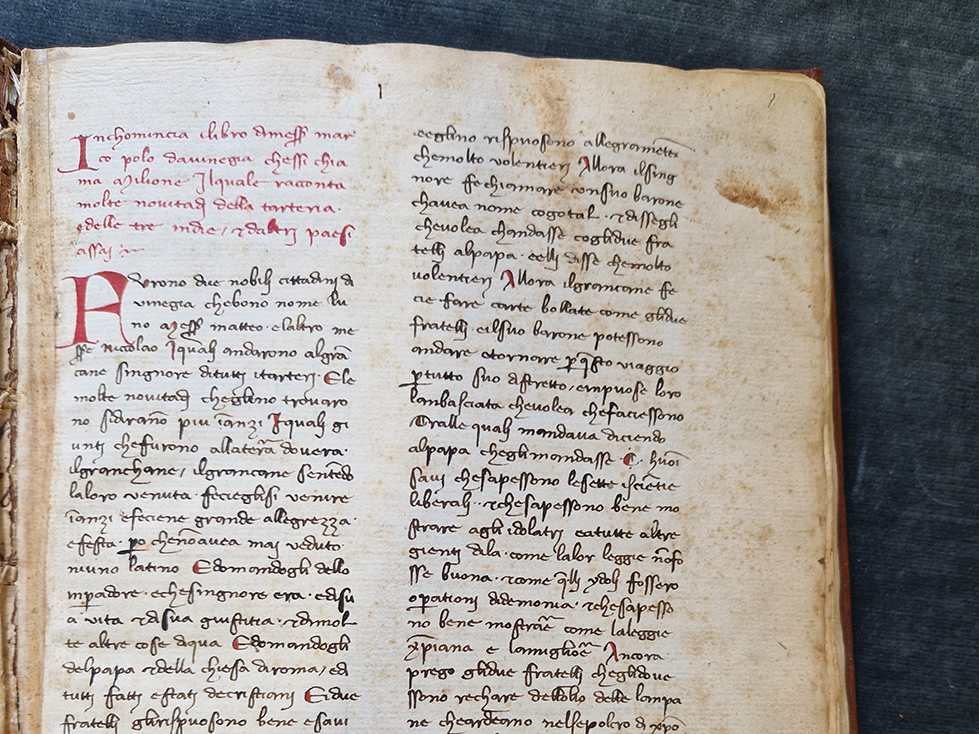 1
Inchomincia ilibro dimess̄ mar
co polo davinegia chessi chia
ma Milione Ilquale racconta
molte novitadj della tarteria ·
edelle tre indie / ⁊daltri paesi
assai
Furono due nobilj cittadini di
vinegia chebono nome lu
no Mess̄ matteo · elaltro me
sse Nicolao Iqualj andarono algrā
cane singnore ditutti itarteri · Ele
molte novitadj cheglino trovaro
no sidirāno piu īanzi Iqualj gi
unti chefurono allatērā dovera ·
ilgranchane / ilgrancane sentēdo
laloro venuta · fecieglisi venire
īanzi efeciene grande allegrezza ·
efesta · ꝑo chenōavea mai veduto
niuno latino Edomandogli dello
inꝑadore · echesingnore era · edisu
a vita ⁊disua giustitia · ⁊dimol
te altre cose diqua Edomandogli
delpapa ⁊della chiesa diroma / edi
tutti fatti estati decristiani Eidue
fratelli glirispuosono bene esavi
eeglino rispuosono allegramētē
chemolto volentieri Allora ilsing
nore fechiamare unsuo barone
chavea nome cogotal · ⁊dissegli
chevolea chandasse coglidue fra
telli alpapa · eelli disse chemolto
volentieri Allora ilgrancane fe
cie fare carte bollate come glidue
fratelli eilsuo barone potessono
andare etornare ꝑ q̄sto viaggio
ꝑtutto suo distretto / empuose loro
lanbasciata chevolea chefaciessono
Tralle quali mandava diciendo
alpapa cheglimandasse · C · huoī
savi chesapessono lesette isciētie
liberali · ⁊chesapessono bene mo
strare agli idolatri eatutte altre
gienti dila · come lalor leggie nōfo
sse buona · ⁊come q̄lli ydoli fossero
oꝑationi didemonia · ⁊chesapesso
no bene mostrare come laleggie
xp̄iana e lamigliōē Ancora
prego glidue fratelli cheglidove
ssono rechare dellolio delle lampa
ne cheardeano nelsepolcro di xp̄o